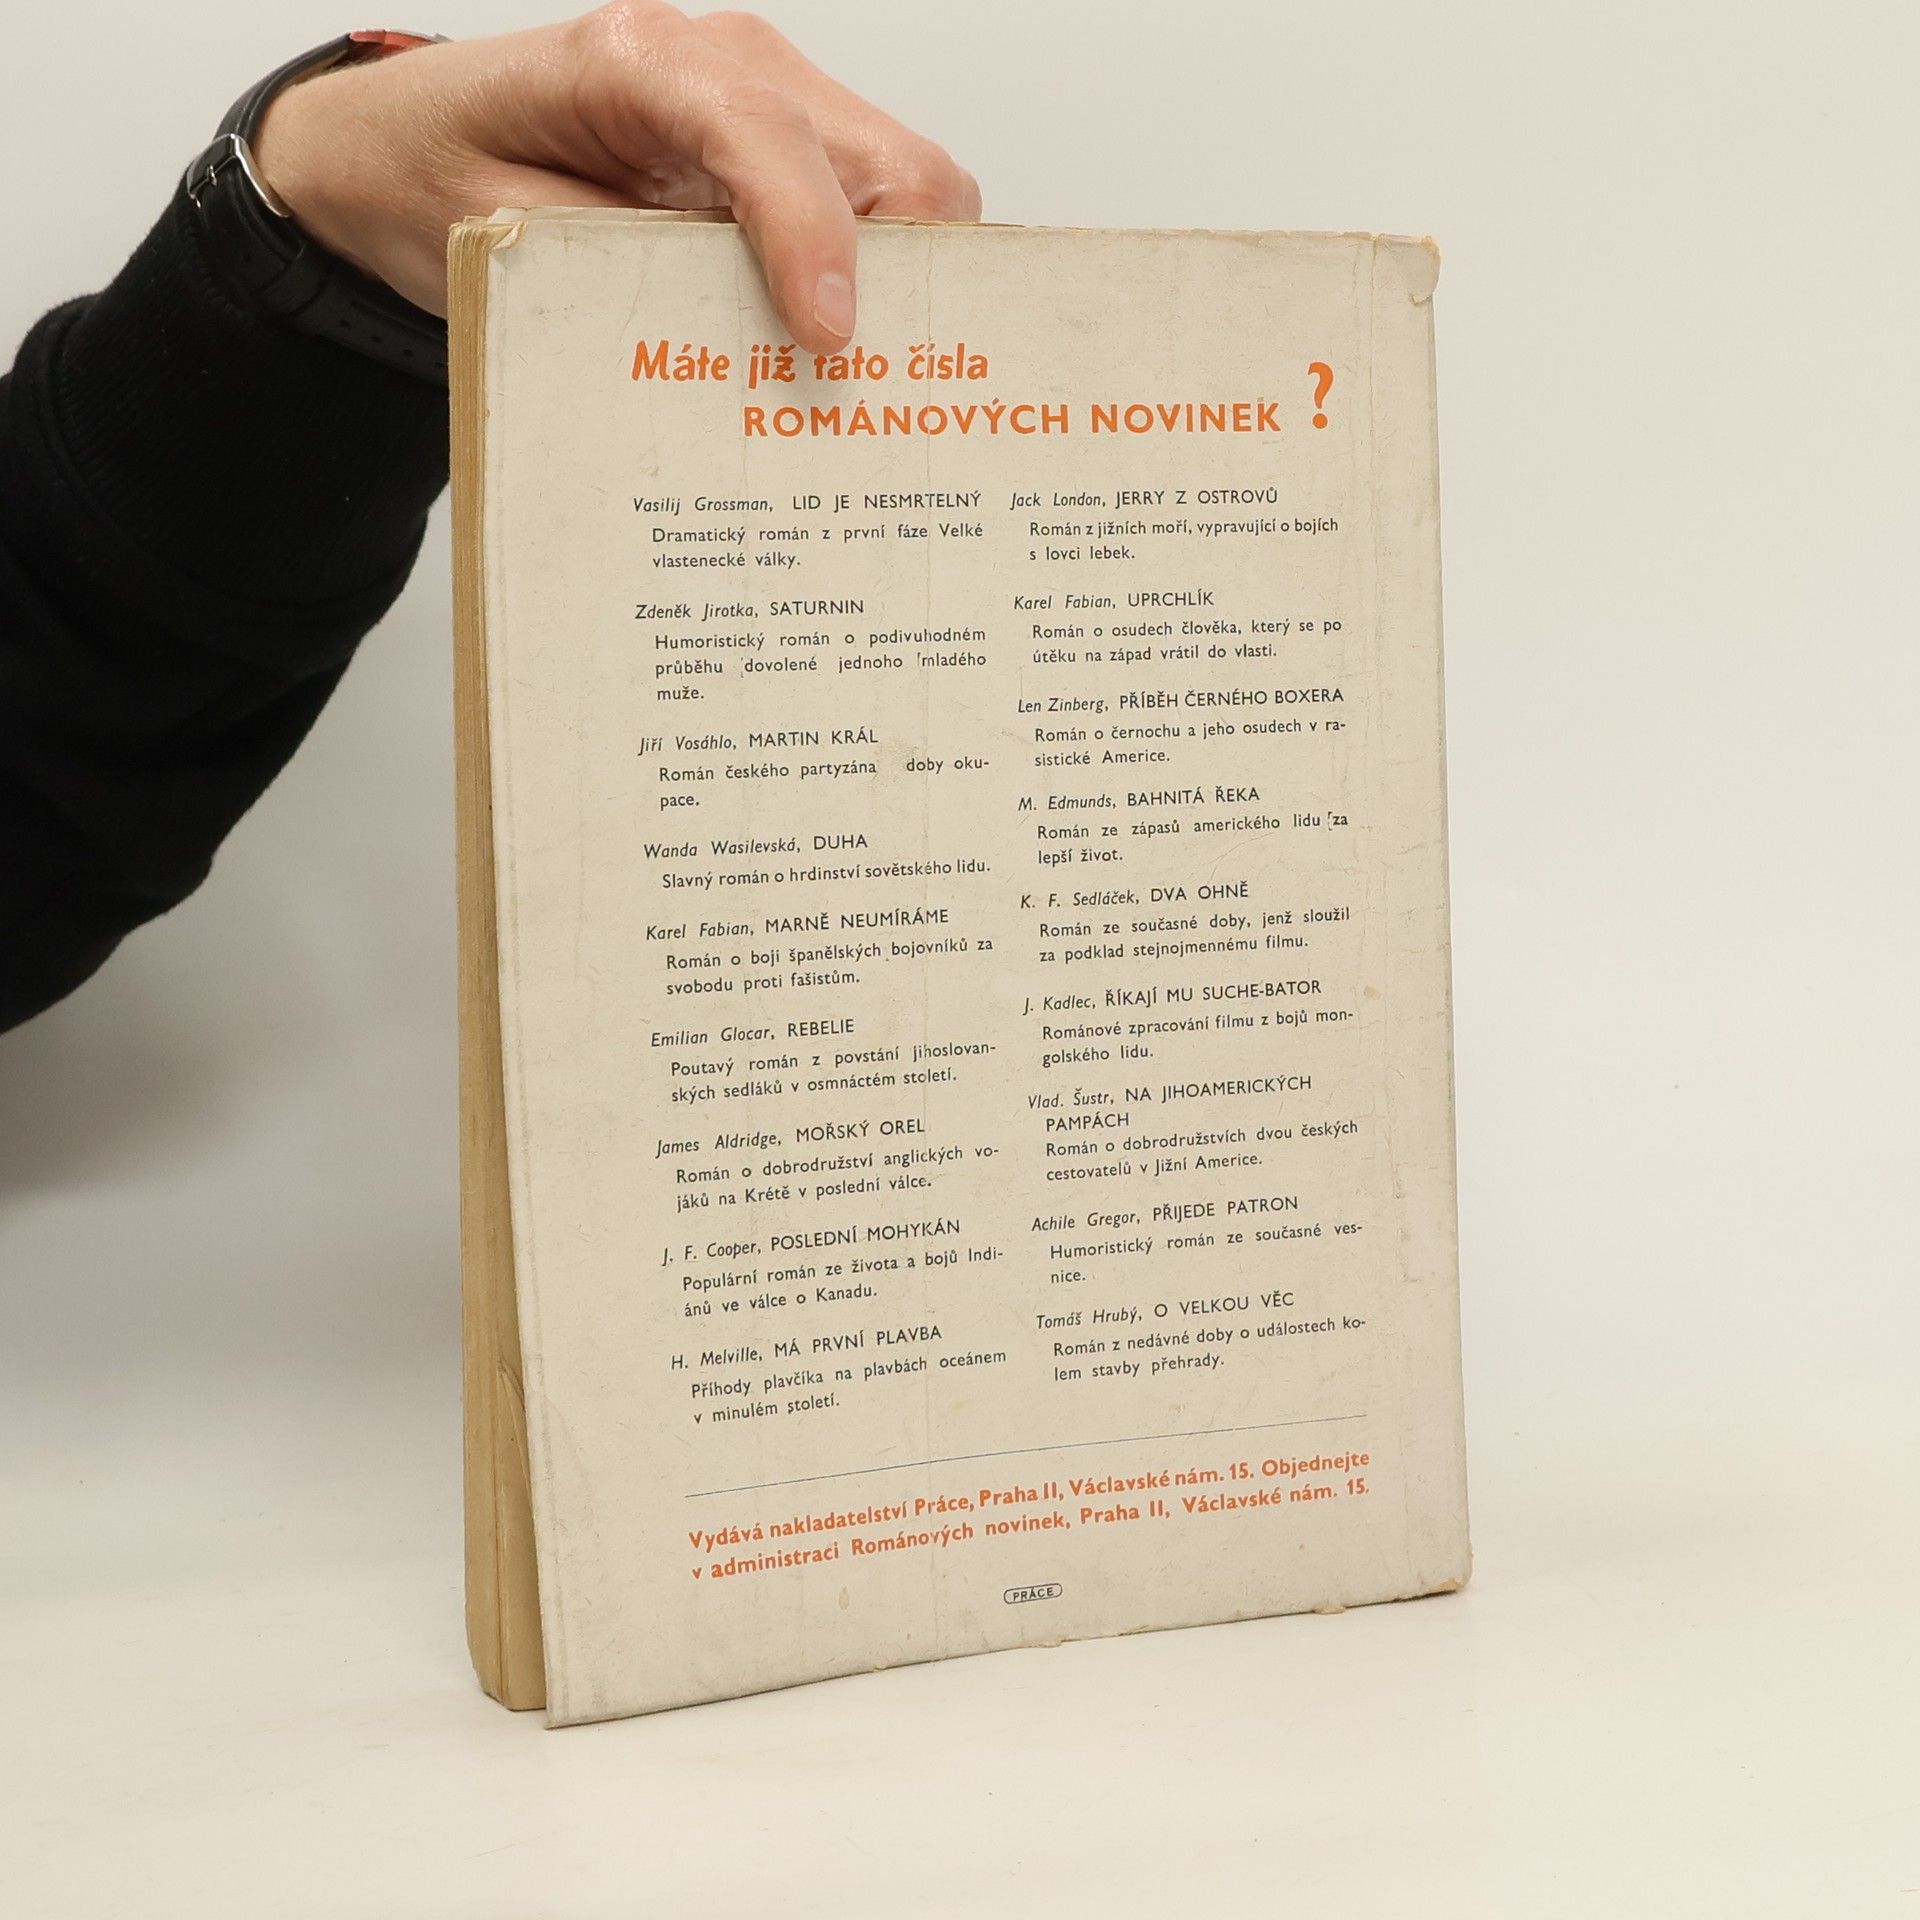 Máte již tato čísla
ROMÁNOVÝCH NOVINEK ?
Vasilij Grossman, LID JE NESMRTELNÝ
Dramatický román z první fáze Velké
vlastenecké války.
Zdeněk Jirotka, SATURNIN
Humoristický román o podivuhodném
průběhu dovolené jednoho mladého
muže.
Jiří Vosáhlo, MARTIN KRÁL
Román českého partyzána doby oku-
pace.
Wanda Wasilevská, DUHA
Slavný román o hrdinství sovětského lidu.
Karel Fabian, MARNĚ NEUMÍRÁME
Román o boji španělských bojovníků za
svobodu proti fašistům.
Emilian Glocar, REBELIE
Poutavý román z povstání jihoslovan-
ských sedláků v osmnáctém století.
James Aldridge, MOŘSKÝ OREL
Román o dobrodružství anglických vo-
jáků na Krétě v poslední válce.
J. F. Cooper, POSLEDNÍ MOHYKÁN
Populární román ze života a bojů Indi-
ánů ve válce o Kanadu.
H. Melville, MÁ PRVNÍ PLAVBA
Příhody plavčíka na plavbách oceánem
v minulém století.
Jack London, JERRY Z OSTROVŮ
Román z jižních moří, vypravující o bojích
s lovci lebek.
Karel Fabian, UPRCHLÍK
Román o osudech člověka, který se po
útěku na západ vrátil do vlasti.
Len Zinberg, PŘÍBĚH ČERNÉHO BOXERA
Román o černochu a jeho osudech v ra-
sistické Americe.
M. Edmunds, BAHNITÁ ŘEKA
Román ze zápasů amerického lidu za
lepší život.
K. F. Sedláček, DVA OHNĚ
Román ze současné doby, jenž sloužil
za podklad stejnojmennému filmu.
J. Kadlec, ŘÍKAJÍ MU SUCHE-BATOR
Románové zpracování filmu z bojů mon-
golského lidu.
Vlad. Šustr, NA JIHOAMERICKÝCH
PAMPÁCH
Román o dobrodružstvích dvou českých
cestovatelů v Jižní Americe.
Achile Gregor, PŘIJEDE PATRON
Humoristický román ze současné ves-
nice.
Tomáš Hrubý, O VELKOU VĚC
Román z nedávné doby o událostech ko-
lem stavby přehrady.
Vydává nakladatelství Práce, Praha II, Václavské nám. 15. Objednejte
v administraci Románových novinek, Praha II, Václavské nám. 15.
PRÁCE